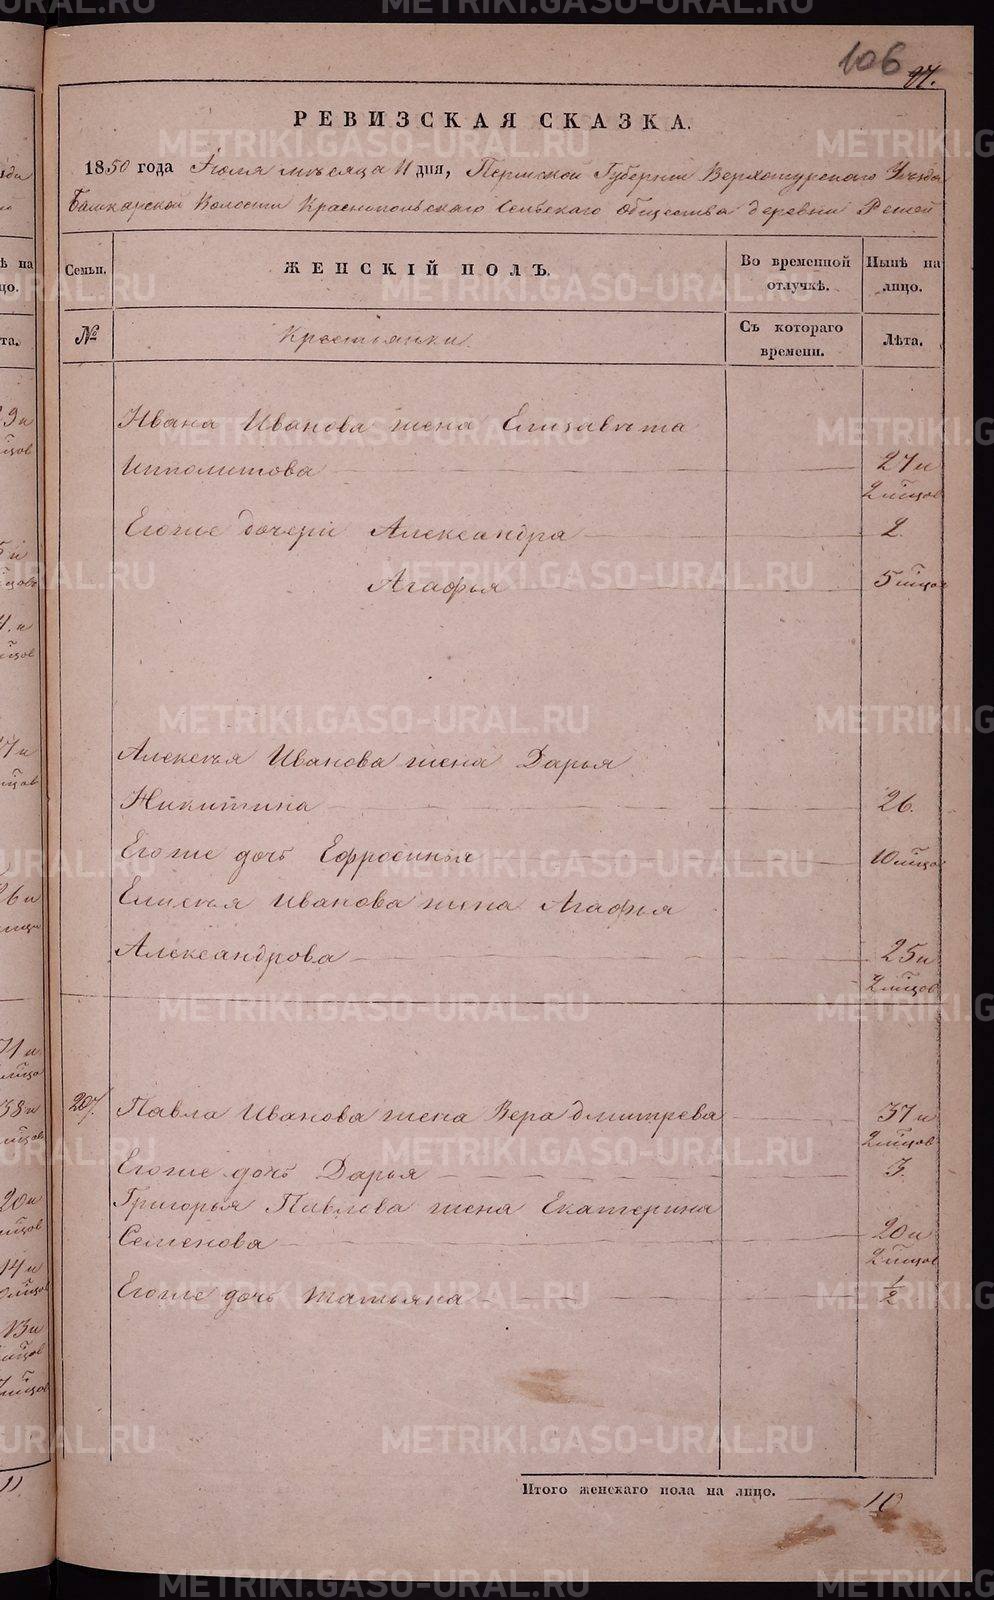 106
97.
РЕВИЗСКАЯ СКАЗКА.
1850 года Іюля мѣсяца 11 дня, Пермской Губерніи Верхотурскаго Уѣзда
Башкарской Волости Краснопольскаго Сельскаго Общества деревни Решей
Семьи. ЖЕНСКІЙ ПОЛЪ. Во временной отлучкѣ. Нынѣ на лицо.
№ Крестьянки. Съ котораго времени. Лѣта.
Ивана Иванова жена Елизавѣта
Ипполитова 27 и
2 мѣцов
Егоже дочери Александра 2.
Агафья 5 мѣцов
Алексѣя Иванова жена Дарья
Никитина 26.
Егоже дочь Ефросинья 10 мѣцов
Елисѣя Иванова жена Агафья
Александрова 25 и
2 мѣцов
207. Павла Иванова жена Вера Дмитрева 37 и
2 мѣцов
Егоже дочь Дарья 3.
Григорья Павлова жена Екатерина
Семенова 20 и
2 мѣцов
Егоже дочь Татьяна ½
Итого женскаго пола на лицо. 10
METRIKI.GASO-URAL.RU